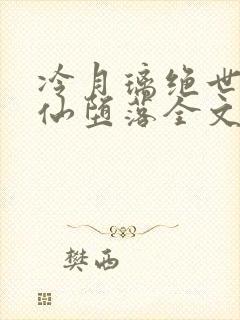 冷月璃绝世
仙堕落全文
樊西